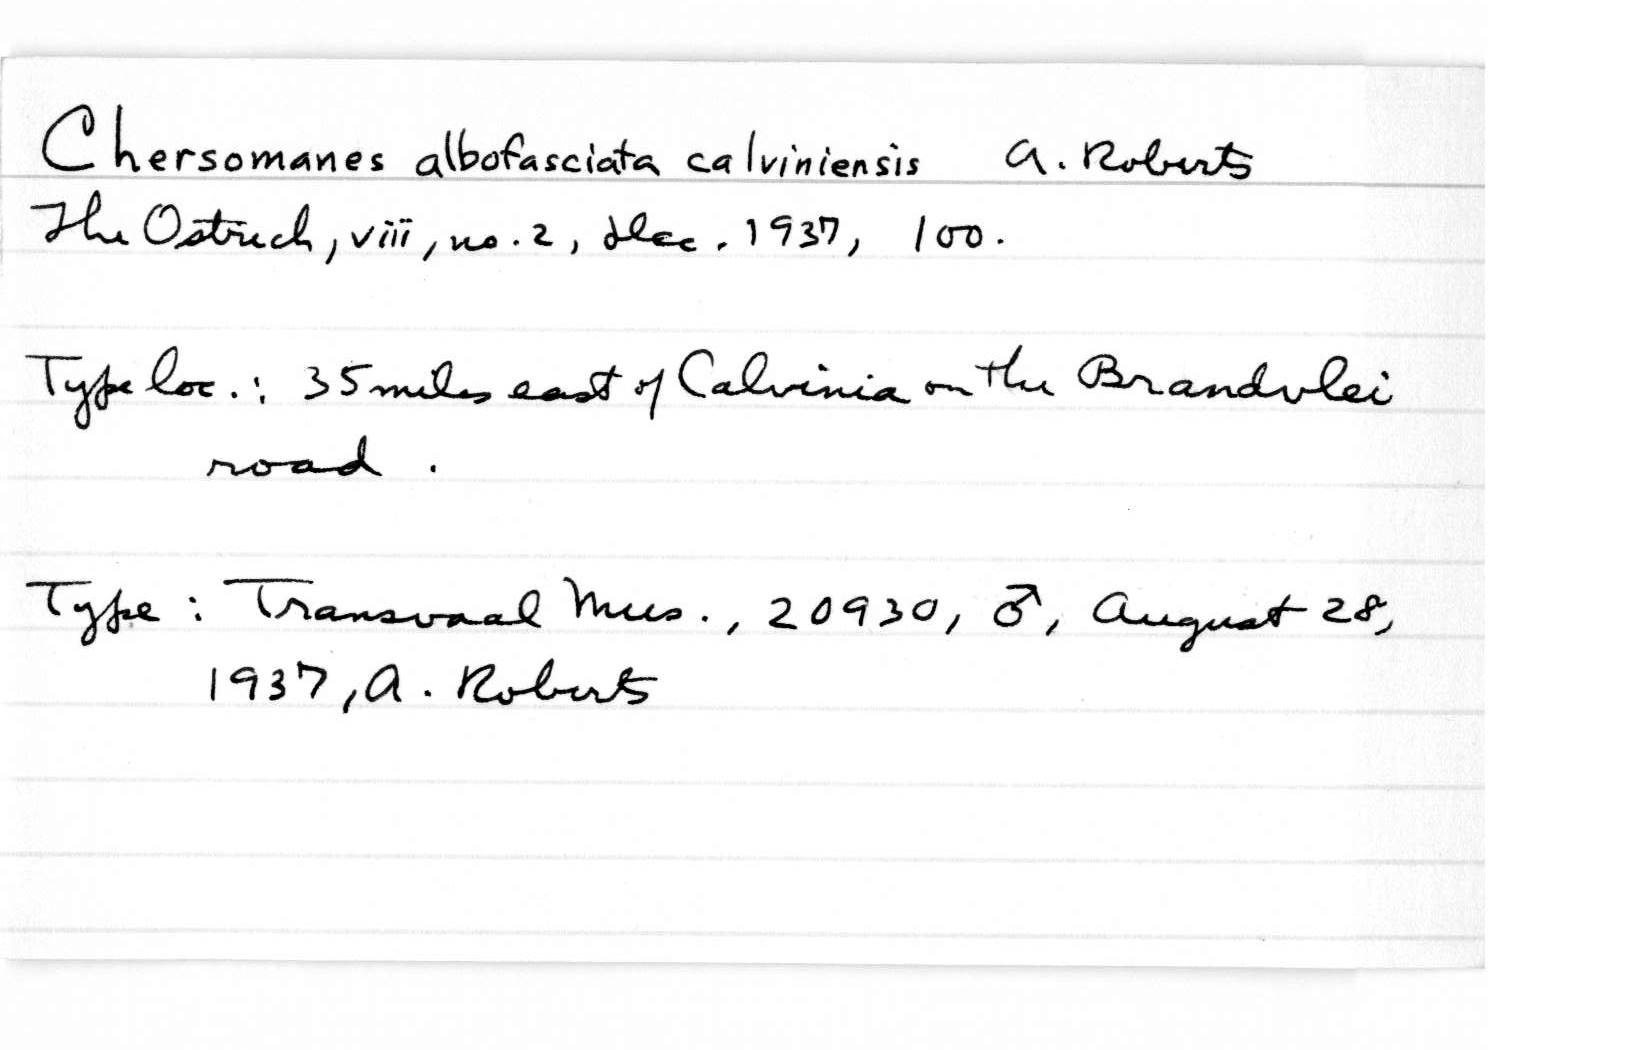 Chersomanes albofasciata calviniensis A. Roberts
The Ostrich, viii, no. 2, Dec. 1937, 100.
Type loc.: 35 miles east of Calvinia on the Brandvlei
road.
Type: Transvaal Mus., 20930, ♂, August 28,
1937, A. Roberts